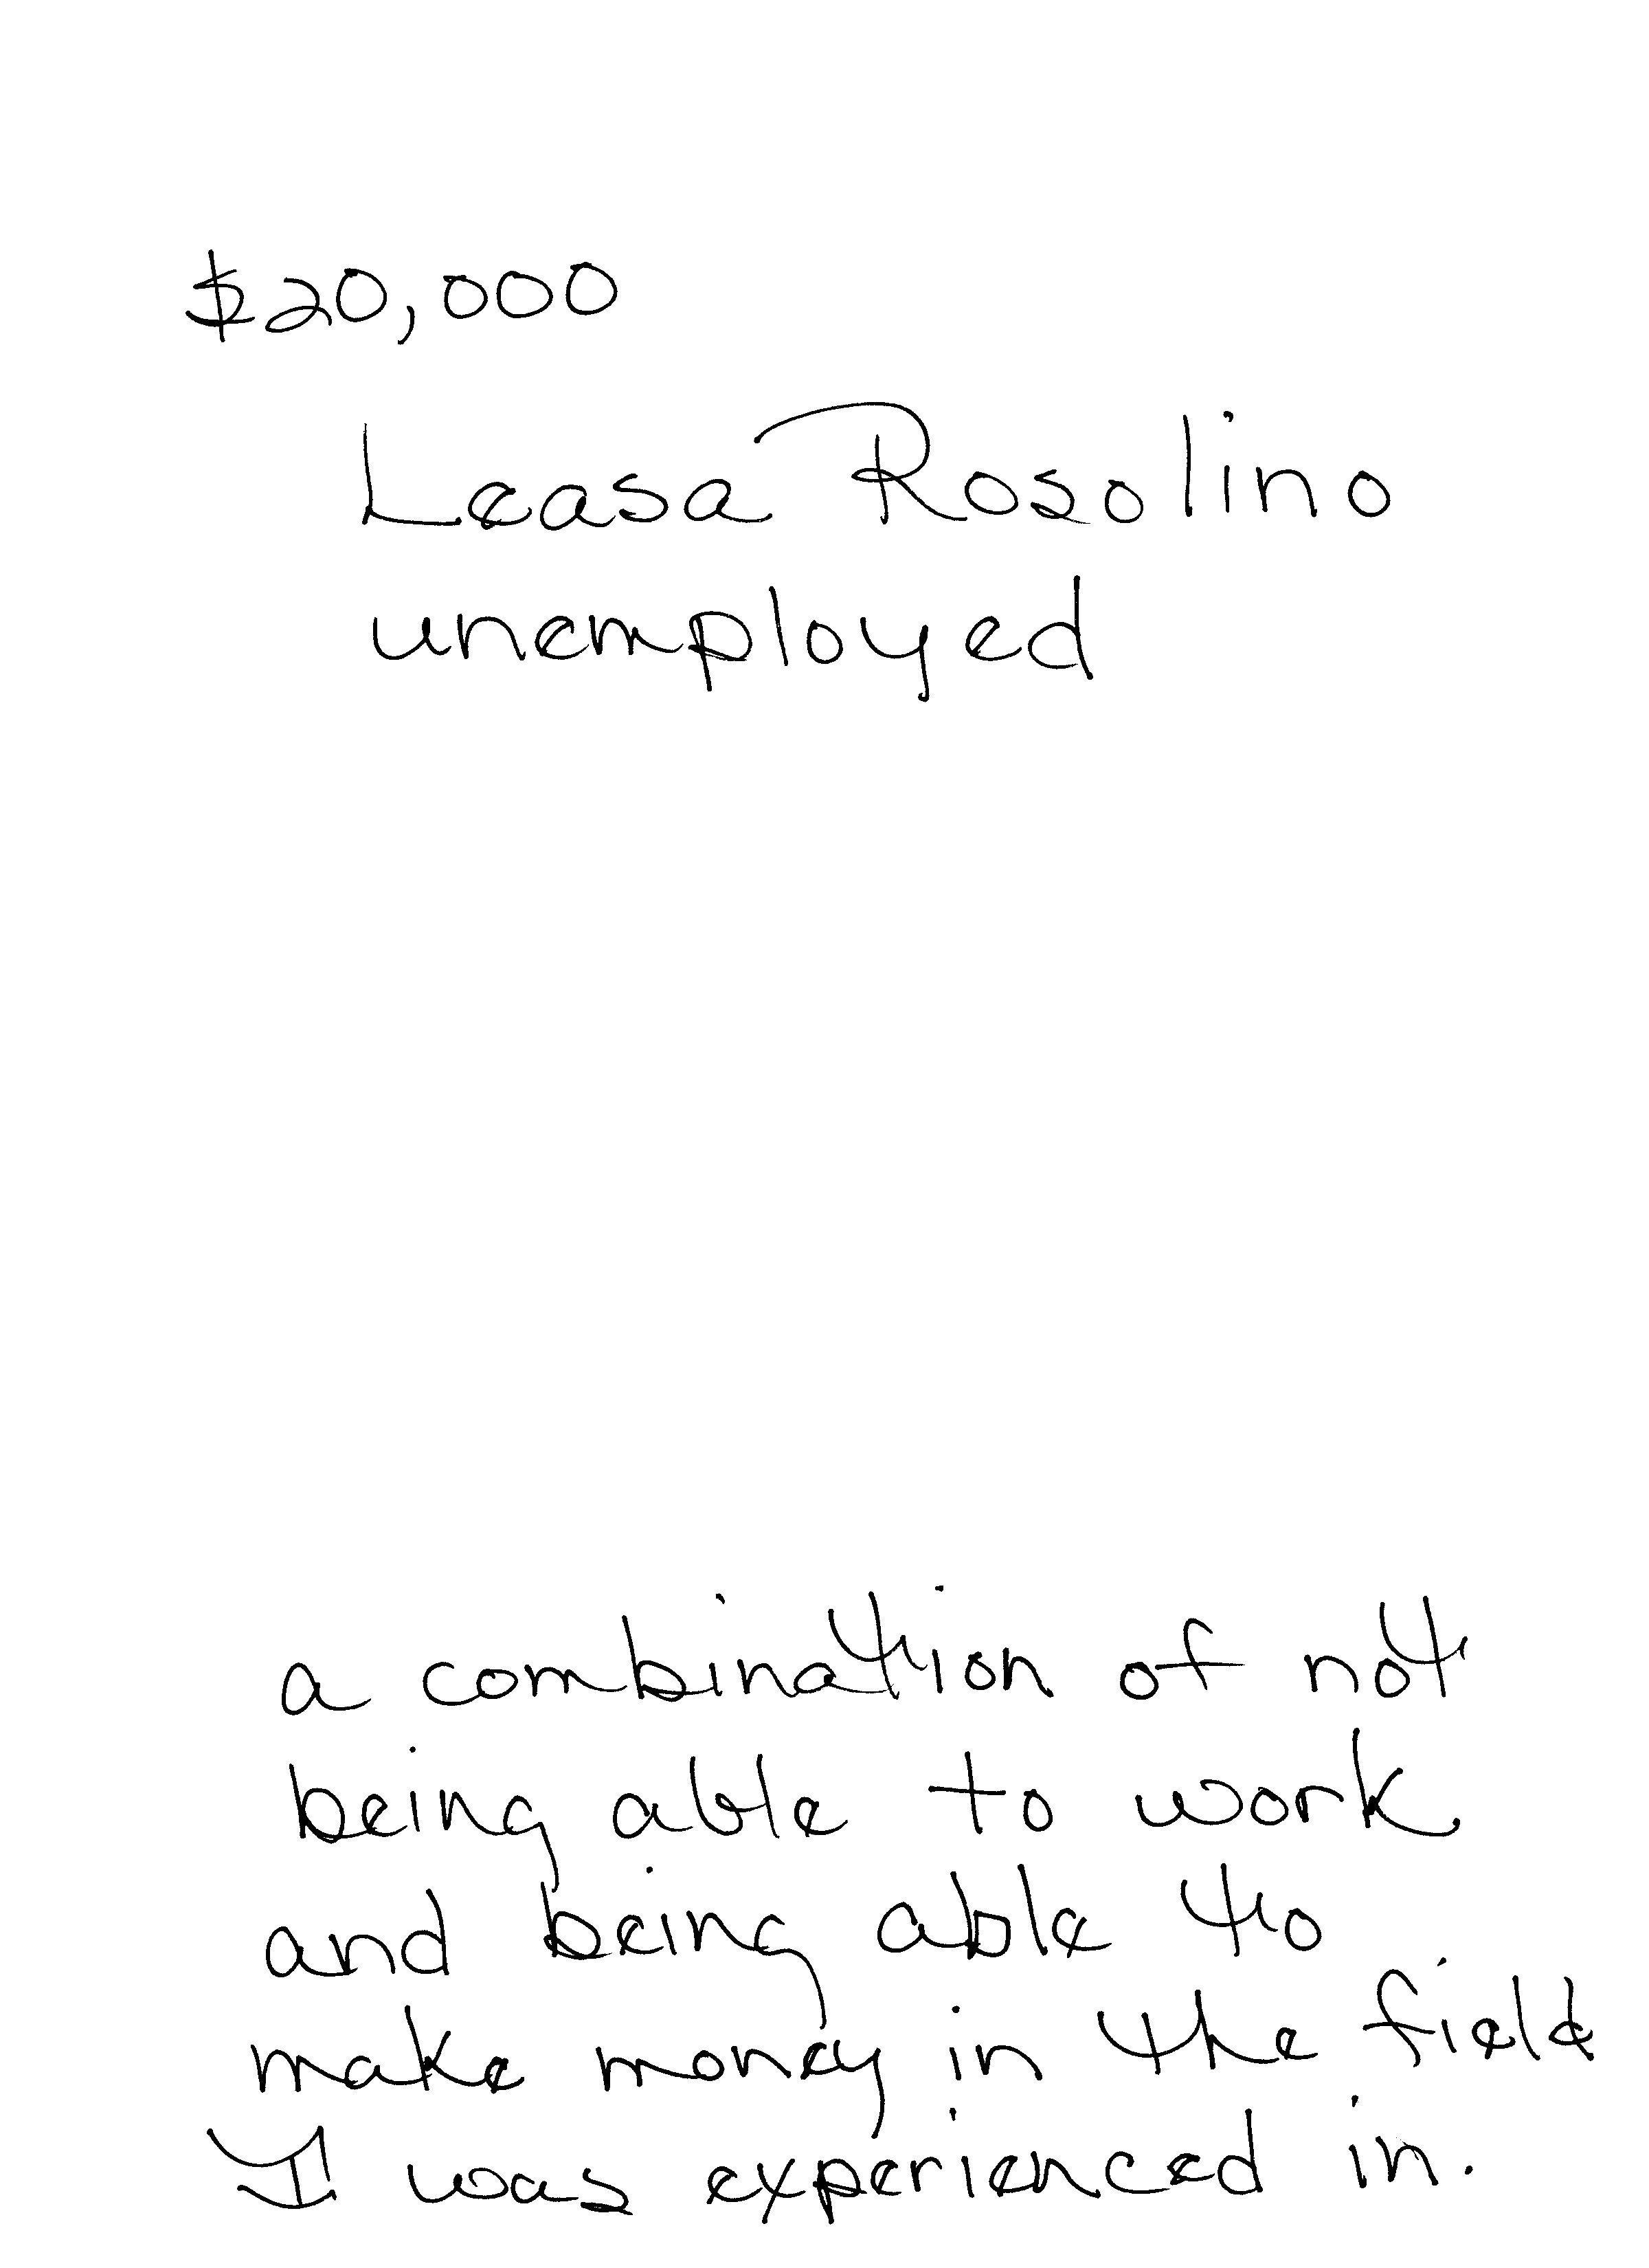 $20,000
Leasa Rosolino
unemployed
a combination of not
being able to work
and being able to
make money in the field
I was experienced in.